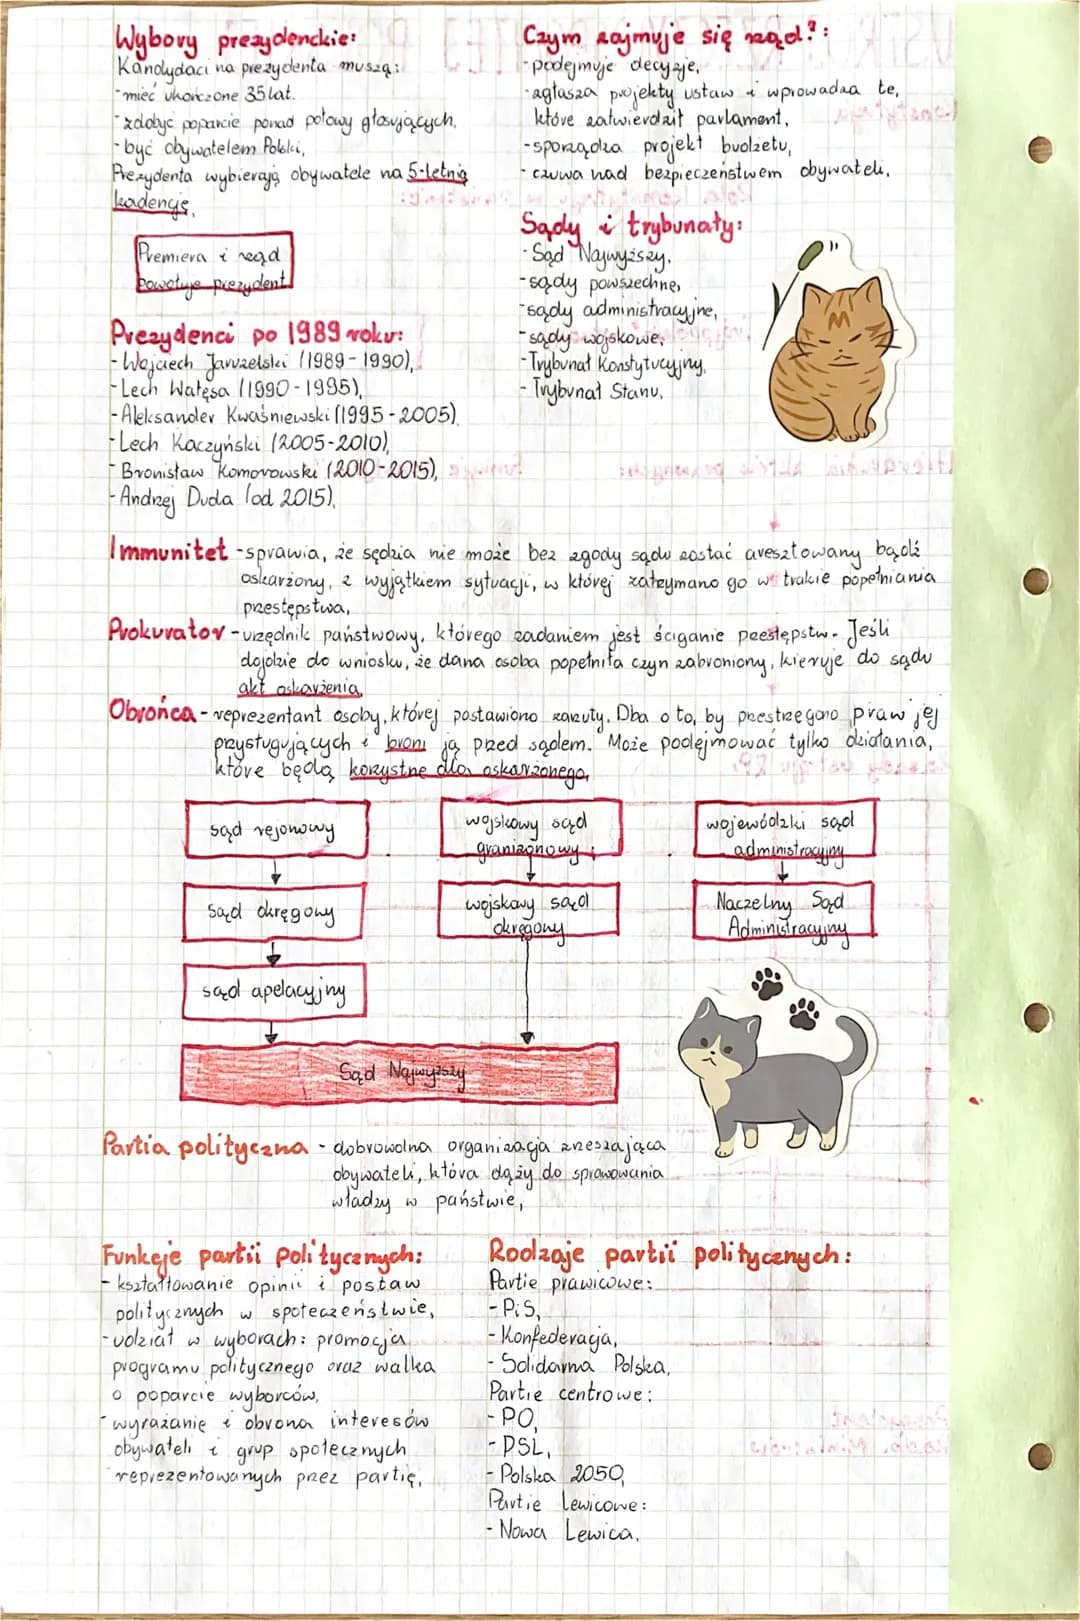 Wybory prezydenckie:
Kandydaci na prezydenta muszą:
- mieć ukończone 35 lat.
- zdobyć poparcie ponad połowy głosujących,
- być obywatelem Polski,
Prezydenta wybierają obywatele na 5-letnią
kadencję.
Premiera i rząd
powołuje prezydent
Prezydenci po 1989 roku:
- Wojciech Jaruzelski (1989-1990),
- Lech Wałęsa (1990-1995),
- Aleksander Kwaśniewski (1995-2005),
- Lech Kaczyński (2005-2010),
- Bronisław Komorowski (2010-2015),
- Andrzej Duda (od 2015).
Czym zajmuje się rząd?:
- podejmuje decyzje,
- zgłasza projekty ustaw i wprowadza te,
które zatwierdził parlament,
- sporządza projekt budżetu,
- czuwa nad bezpieczeństwem obywateli.
Sądy i trybunały:
- Sąd Najwyższy,
- sądy powszechne,
- sądy administracyjne,
- sądy wojskowe,
- Trybunał Konstytucyjny,
- Trybunał Stanu.
Immunitet - sprawia, że sędzia nie może bez zgody sądu zostać aresztowany bądź
oskarżony, z wyjątkiem sytuacji, w której zatrzymano go w trakcie popełniania
przestępstwa,
Prokurator - urzędnik państwowy, którego zadaniem jest ściganie przestępstw. Jeśli
dojdzie do wniosku, że dana osoba popełniła czyn zabroniony, kieruje do sądu
akt oskarżenia,
Obrońca - reprezentant osoby, której postawiono zarzuty. Dba o to, by przestrzegano praw jej
przysługujących i broni ją przed sądem. Może podejmować tylko działania,
które będą korzystne dla oskarżonego,
sąd rejonowy
sąd okręgowy
sąd apelacyjny
wojskowy sąd
granizonowy
wojskowy sąd
okręgowy
wojewódzki sąd
administracyjny
Naczelny Sąd
Administracyjny
Sąd Najwyższy
Partia polityczna - dobrowolna organizacja zrzeszająca
obywateli, która dąży do sprawowania
władzy w państwie,
Funkcje partii politycznych:
- kształtowanie opinii i postaw
politycznych w społeczeństwie,
- udział w wyborach: promocja
programu politycznego oraz walka
o poparcie wyborców,
- wyrażanie i obrona interesów
obywateli i grup społecznych
reprezentowanych przez partię.
Rodzaje partii politycznych:
Partie prawicowe:
- PiS,
- Konfederacja,
- Solidarna Polska,
Partie centrowe:
- PO,
- PSL,
- Polska 2050,
Partie Lewicowe:
- Nowa Lewica.